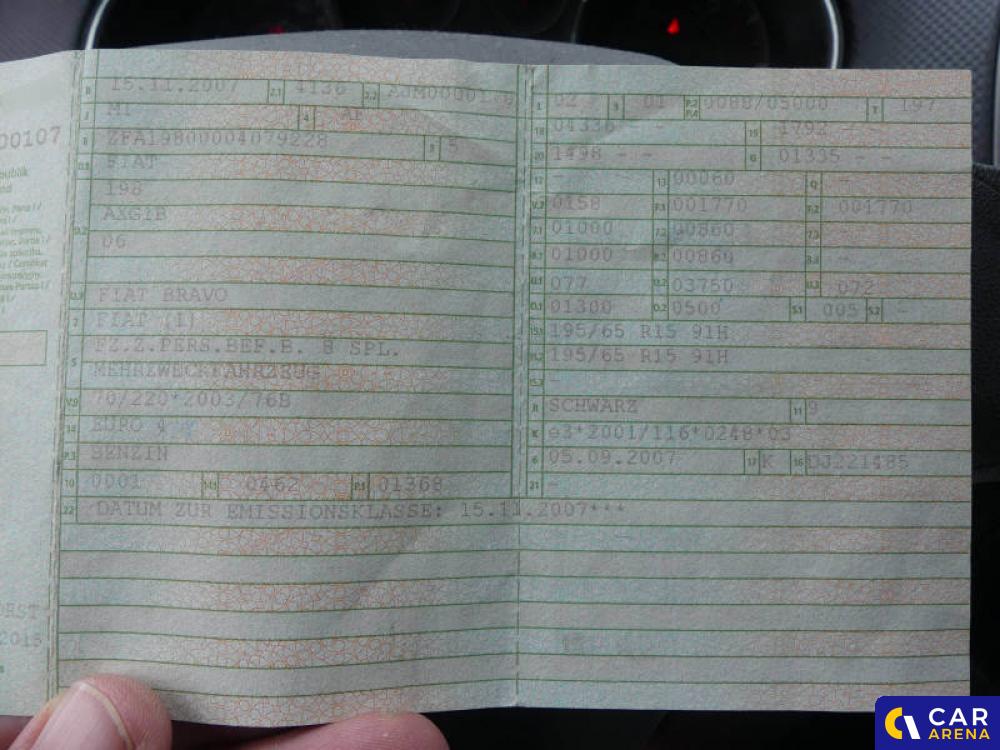 00107
B 15.11.2007 2.1 4136 2.2 AJM00001
J M1 4 AF
E ZFA19800004079228 3 5
D.1 FIAT
198
AXG1B
D.2 06
D.3 FIAT BRAVO
2 FIAT (I)
FZ.Z.PERS.BEF.B. 8 SPL.
5 MEHRZWECKFAHRZEUG
V.9 70/220*2003/76B
14 EURO 4
P.3 BENZIN
10 0001 14.1 0462 P.1 01368
22 DATUM ZUR EMISSIONSKLASSE: 15.11.2007***
L 02 9 01 P.2 P.4 0088/05000 T 197
18 04336 - - 19 1792 - -
20 1498 - - G 01335 - -
12 - 13 00060 Q -
V.7 0158 F.1 001770 F.2 001770
7.1 01000 7.2 00860 7.3 -
8.1 01000 8.2 00860 8.3 -
U.1 077 U.2 03750 U.3 072
O.1 01300 O.2 0500 S.1 005 S.2 -
15.1 195/65 R15 91H
15.2 195/65 R15 91H
15.3 -
R SCHWARZ 11 9
K e3*2001/116*0248*03
6 05.09.2007 17 K 16 DJ221485
21 -
2015
CAR
ARENA